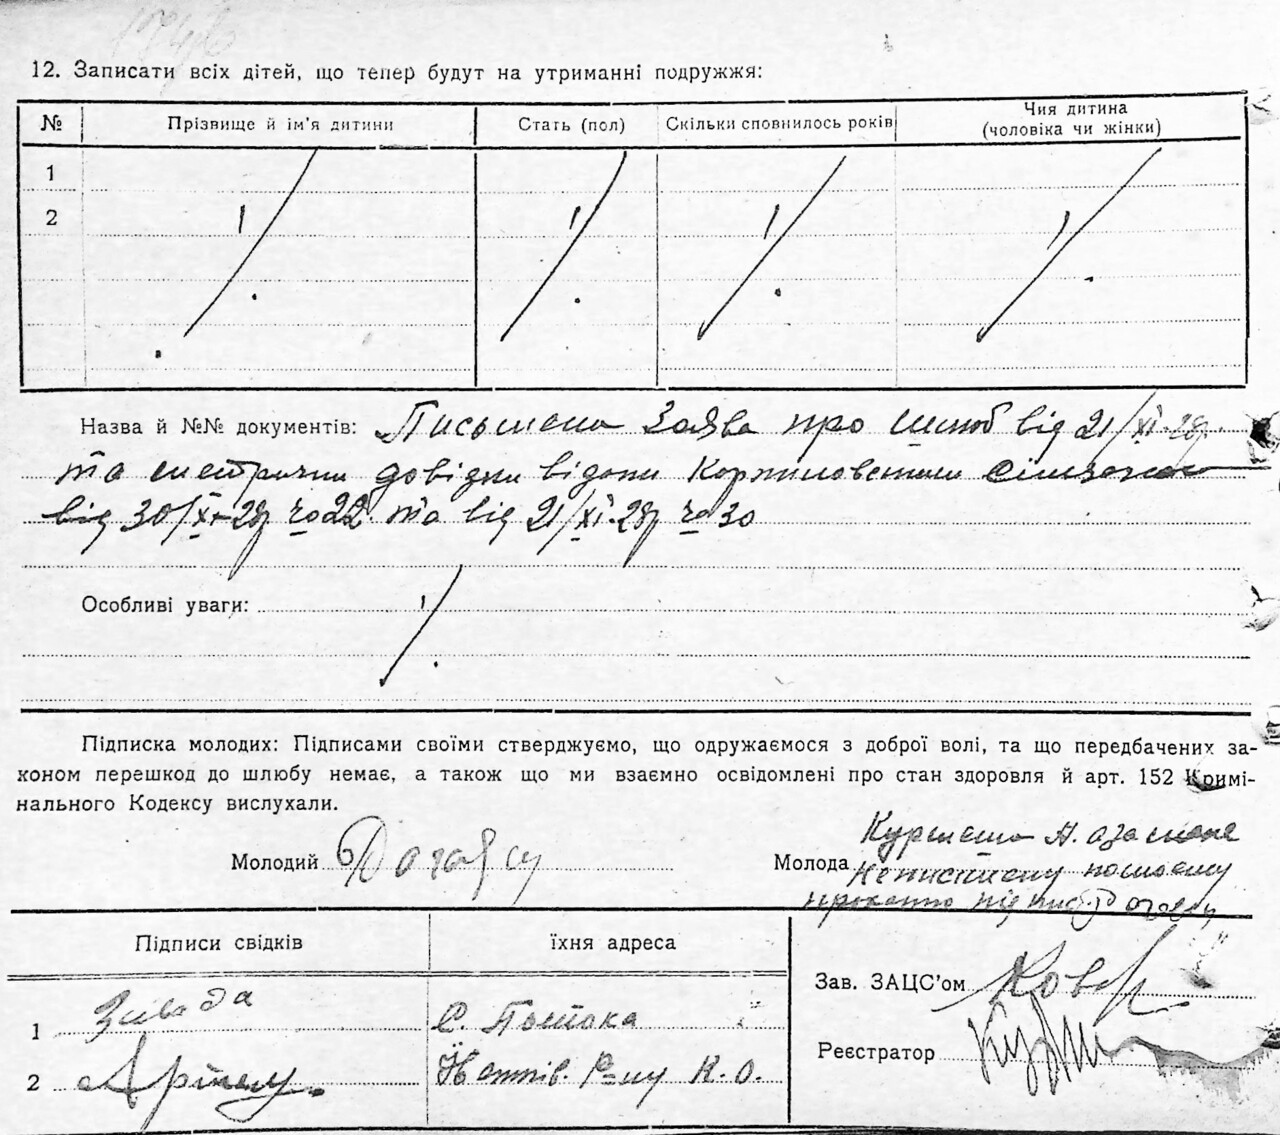 12. Записати всіх дітей, що тепер будут на утриманні подружжя:
№ Прізвище й ім'я дитини Стать (пол) Скільки сповнилось років Чия дитина
(чоловіка чи жінки)
1
2
Назва й №№ документів: Письмена Заява про шлюб від 21/XI-28р.
та метричні довідки відани
від 30/X-28р за 22 та від 21/XI-28р за 30
Особливі уваги:
Підписка молодих: Підписами своїми стверджуємо, що одружаємося з доброї волі, та що передбачених за-
коном перешкод до шлюбу немає, а також що ми взаємно освідомлені про стан здоровля й арт. 152 Кримі-
нального Кодексу вислухали.
Молодий
Молода А. а за
неписьмену
Підписи свідків їхня адреса
Зав. ЗАЦС'ом
1 с. Потока
Реєстратор
2 К. О.